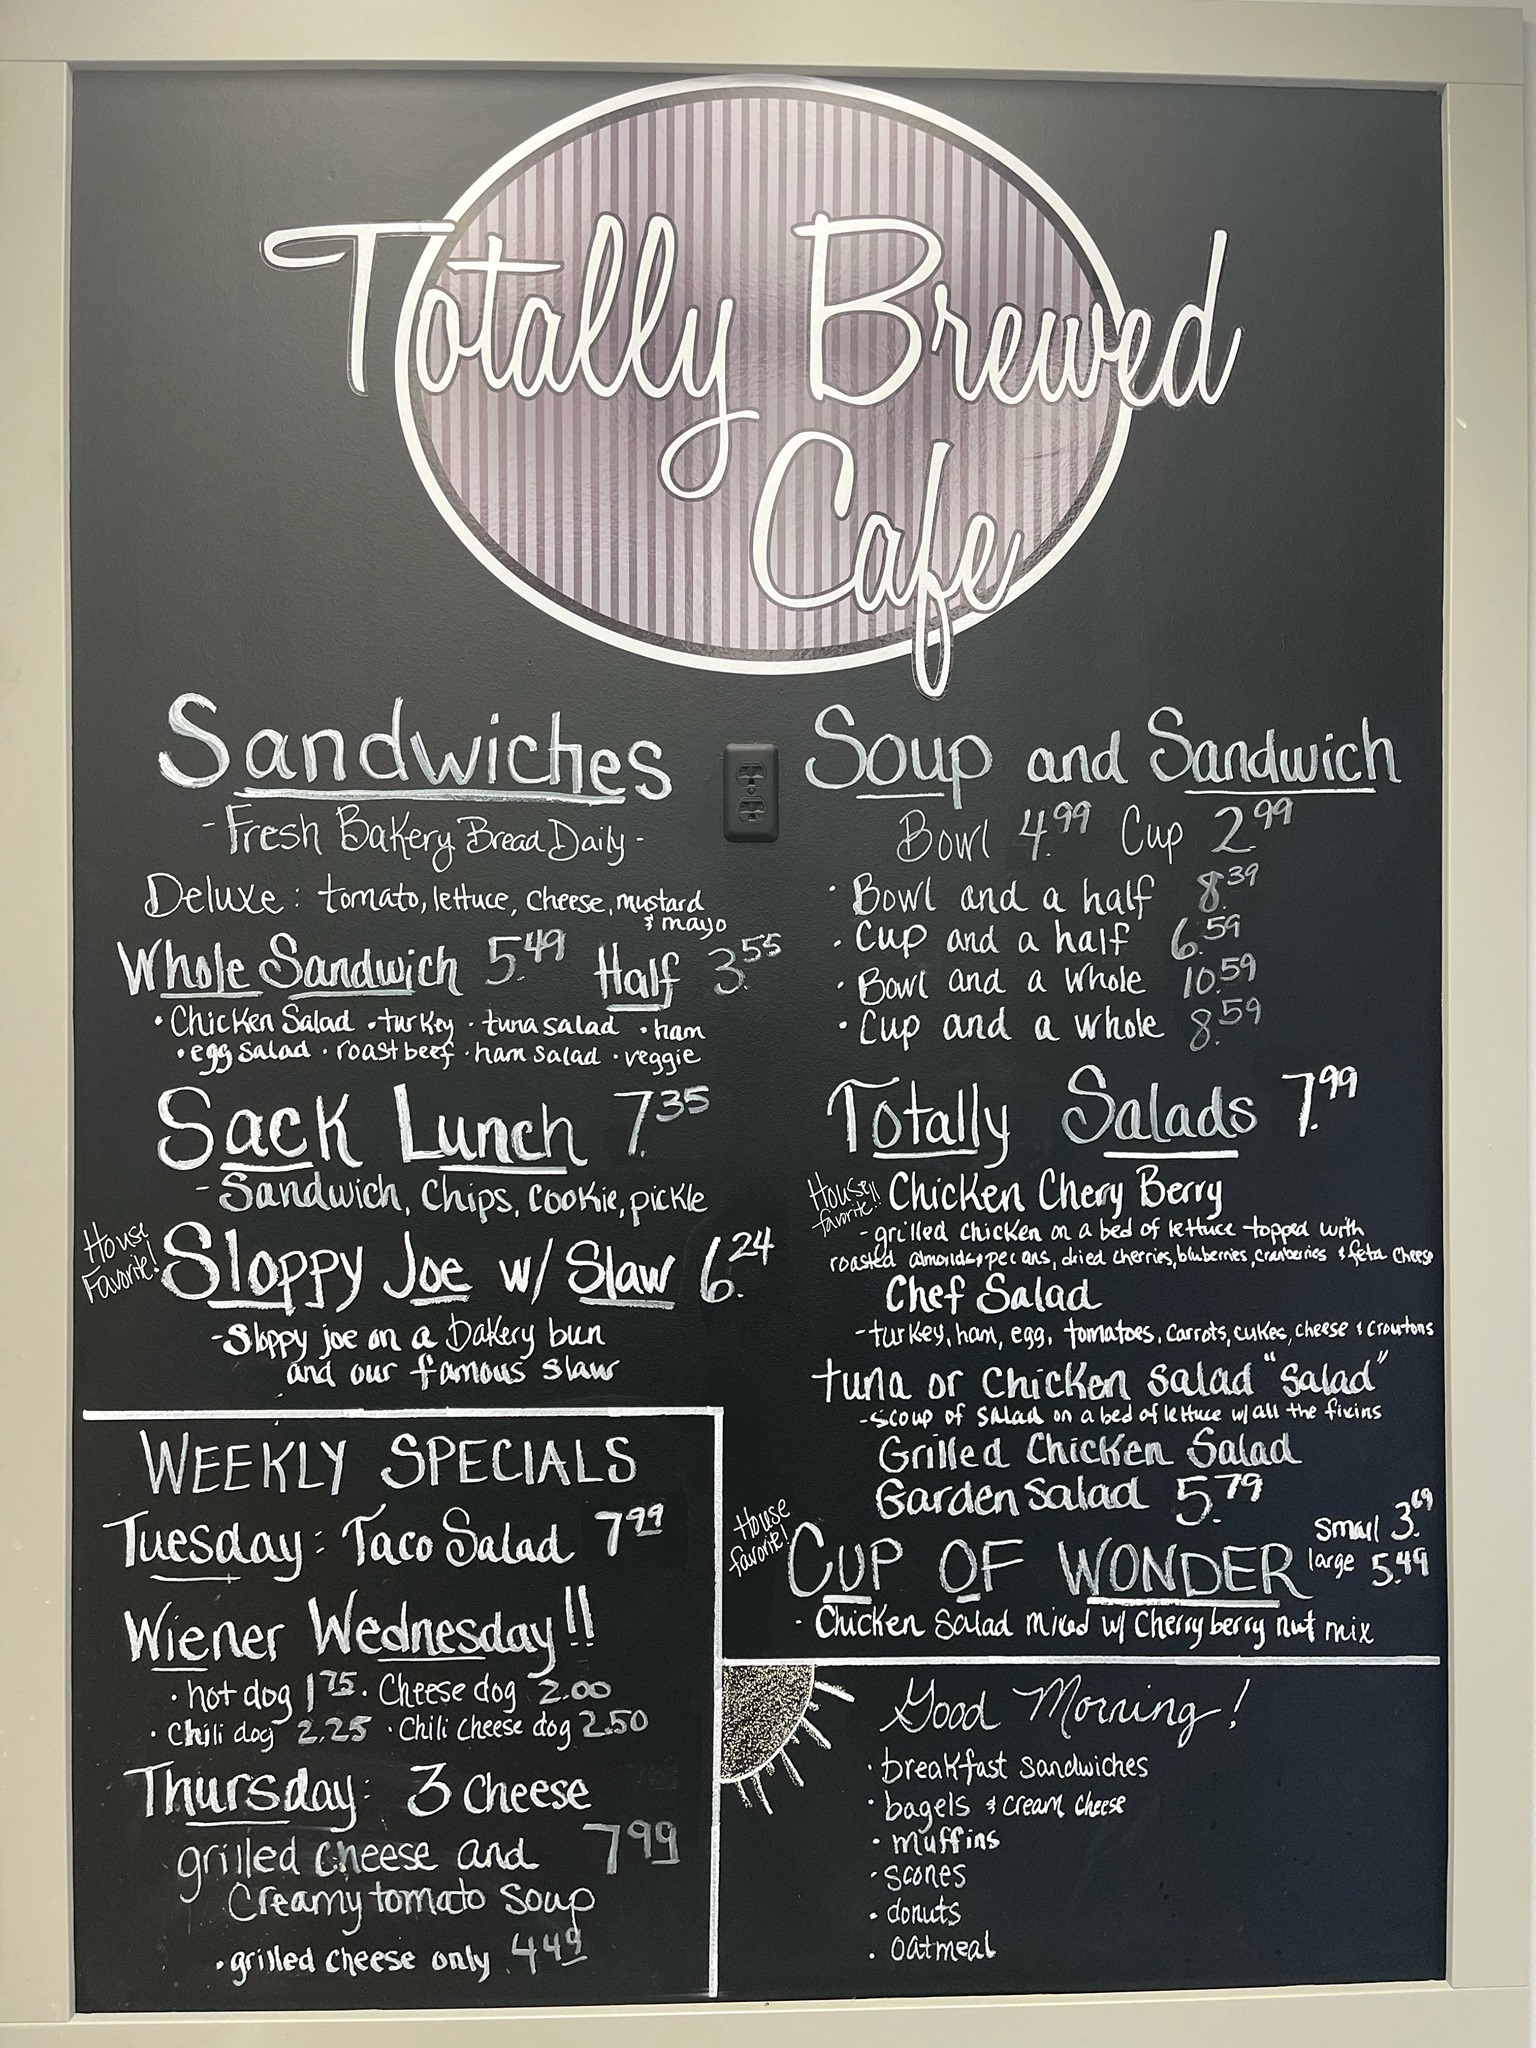 Totally Brewed
Cafe
Sandwiches
- Fresh Bakery Bread Daily -
Deluxe: tomato, lettuce, cheese, mustard
& mayo
Whole Sandwich 5.49 Half 3.55
• Chicken Salad • turkey • tuna salad • ham
• egg salad • roast beef • ham salad • veggie
Sack Lunch 7.35
- Sandwich, Chips, cookie, pickle
House
Favorite!
Sloppy Joe w/ Slaw 6.24
- Sloppy joe on a bakery bun
and our famous slaw
WEEKLY SPECIALS
Tuesday: Taco Salad 7.99
Wiener Wednesday!!
• hot dog 1.75 • Cheese dog 2.00
• Chili dog 2.25 • Chili cheese dog 2.50
Thursday: 3 cheese
grilled cheese and 7.99
Creamy tomato soup
• grilled cheese only 4.49
Soup and Sandwich
Bowl 4.99 Cup 2.99
• Bowl and a half 8.39
• Cup and a half 6.59
• Bowl and a whole 10.59
• Cup and a whole 8.59
Totally Salads 7.99
House
favorite!!
Chicken Chery Berry
- grilled chicken on a bed of lettuce topped with
roasted almonds, pecans, dried cherries, bluberries, cranberries & feta cheese
Chef Salad
- turkey, ham, egg, tomatoes, carrots, cukes, cheese & croutons
tuna or chicken salad "salad"
- scoup of salad on a bed of lettuce w/ all the fixins
Grilled Chicken Salad
Garden Salad 5.79
House
favorite!
CUP OF WONDER
small 3.69
large 5.49
- Chicken salad mixed w/ Cherry berry nut mix
Good Morning!
• breakfast sandwiches
• bagels & cream cheese
• muffins
• scones
• donuts
• oatmeal